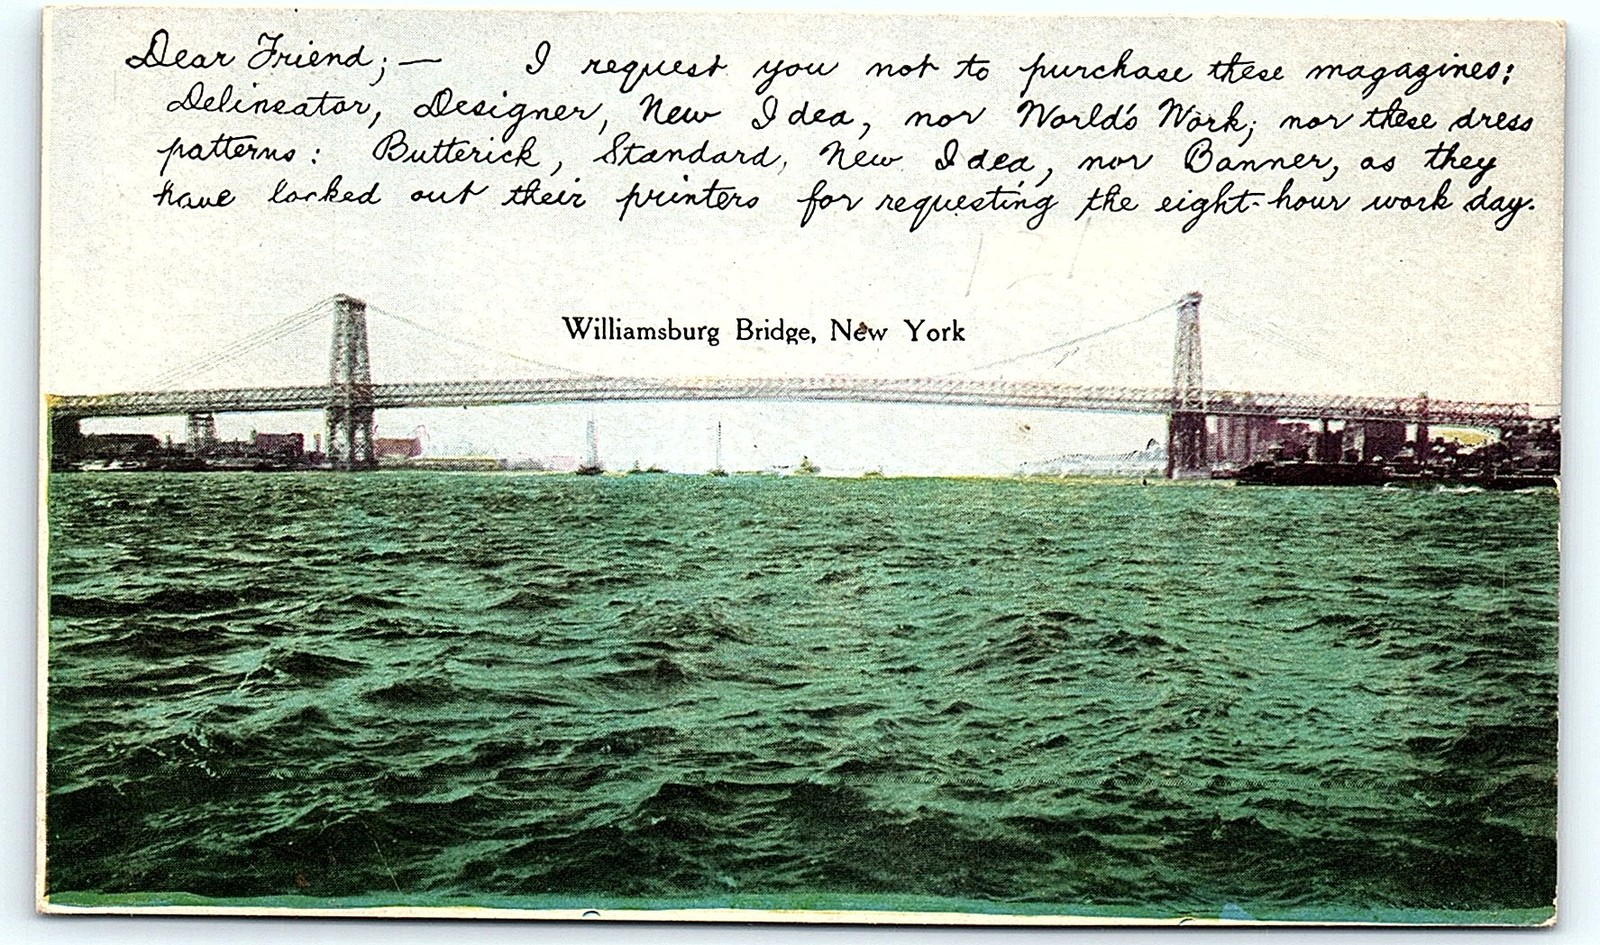 Dear Friend; — I request you not to purchase these magazines:
Delineator, Designer, New Idea, nor World's Work; nor these dress
patterns: Butterick, Standard, New Idea, nor Banner, as they
have locked out their printers for requesting the eight-hour work day.
Williamsburg Bridge, New York